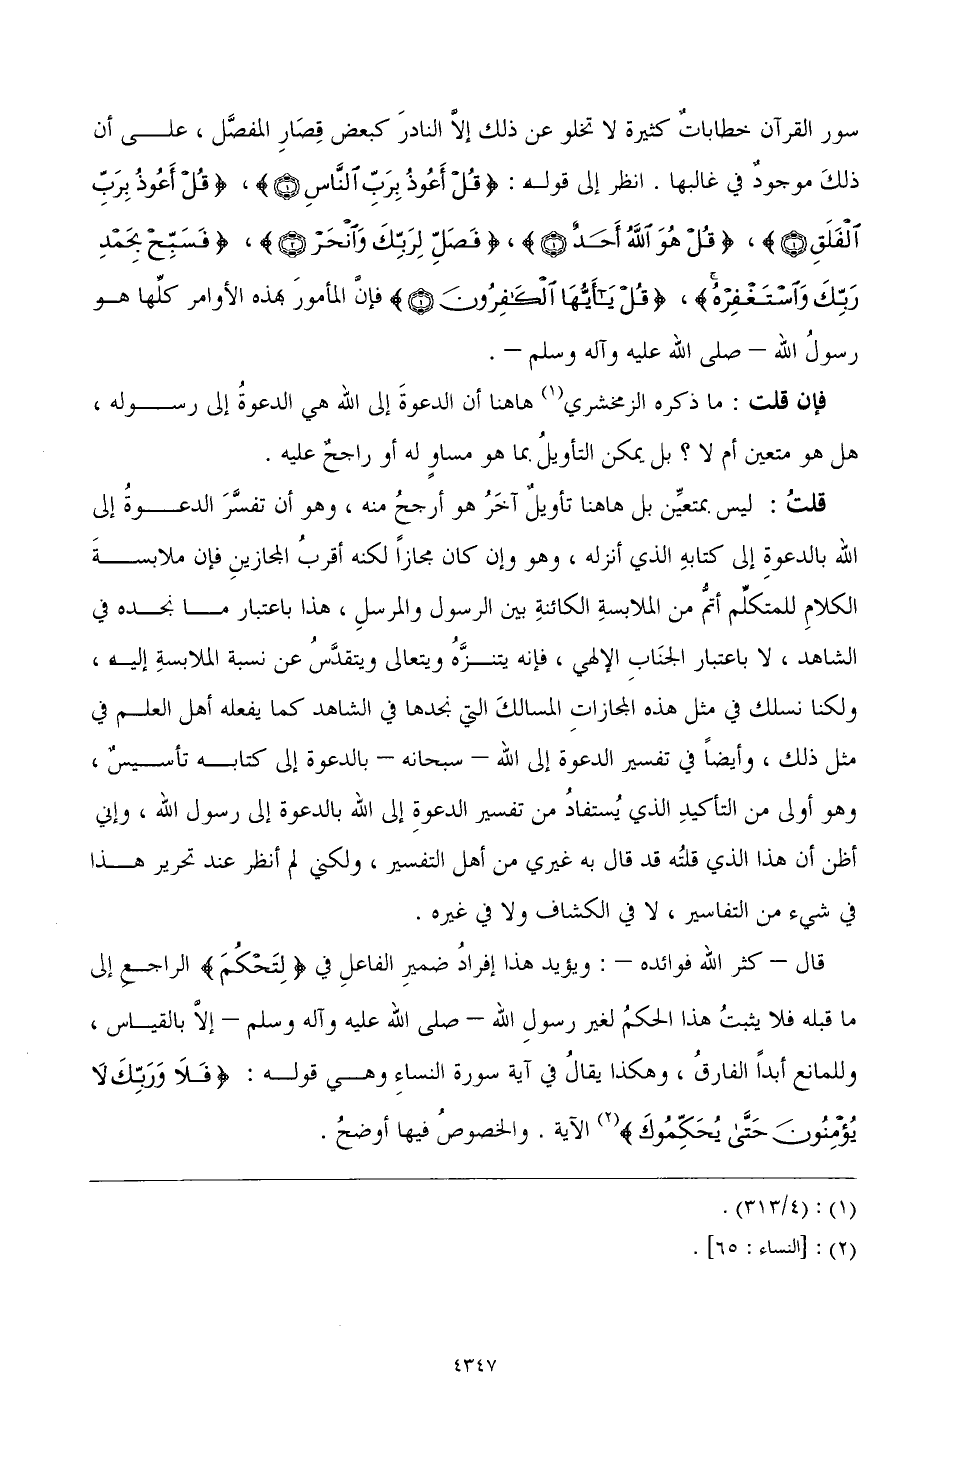 سور القرآن خطاباتٌ كثيرة لا تخلو عن ذلك إلاَّ النادرَ كبعض قِصَارِ المفصَّل ، علـــى أن
ذلكَ موجودٌ في غالبها . انظر إلى قولـه : ﴿ قُلْ أَعُوذُ بِرَبِّ ٱلنَّاسِ ۝١ ﴾ ، ﴿ قُلْ أَعُوذُ بِرَبِّ
ٱلْفَلَقِ ۝١ ﴾ ، ﴿ قُلْ هُوَ ٱللَّهُ أَحَدٌ ۝١ ﴾ ، ﴿ فَصَلِّ لِرَبِّكَ وَٱنْحَرْ ۝٢ ﴾ ، ﴿ فَسَبِّحْ بِحَمْدِ
رَبِّكَ وَٱسْتَغْفِرْهُ ۚ ﴾ ، ﴿ قُلْ يَـٰٓأَيُّهَا ٱلْكَـٰفِرُونَ ۝١ ﴾ فإنَّ المأمورَ بهذه الأوامر كلَّها هــو
رسولُ الله – صلى الله عليه وآله وسلم – .
فإن قلت : ما ذكره الزمخشري(١) هاهنا أن الدعوةَ إلى الله هي الدعوةُ إلى رســوله ،
هل هو متعين أم لا ؟ بل يمكن التأويلُ بما هو مساوٍ له أو راجحٌ عليه .
قلتُ : ليس بمتعيِّن بل هاهنا تأويلٌ آخَرُ هو أرجحُ منه ، وهو أن تفسَّرَ الدعــوةُ إلى
الله بالدعوةِ إلى كتابهِ الذي أنزله ، وهو وإن كان مجازاً لكنه أقربُ المجازينِ فإن ملابســةَ
الكلامِ للمتكلِّم أتمُّ من الملابسةِ الكائنةِ بين الرسول والمرسلِ ، هذا باعتبار مــا نجــده في
الشاهد ، لا باعتبار الجنَابِ الإلهي ، فإنه يتنـزَّهُ ويتعالى ويتقدَّسُ عن نسبة الملابسةِ إليـه ،
ولكنا نسلك في مثل هذه المجازاتِ المسالكَ التي نجدها في الشاهد كما يفعله أهل العلـم في
مثل ذلك ، وأيضاً في تفسير الدعوة إلى الله – سبحانه – بالدعوة إلى كتابــه تأسـيسٌ ،
وهو أولى من التأكيدِ الذي يُستفادُ من تفسير الدعوةِ إلى الله بالدعوة إلى رسول الله ، وإني
أظن أن هذا الذي قلتُه قد قال به غيري من أهل التفسير ، ولكني لم أنظر عند تحرير هــذا
في شيء من التفاسير ، لا في الكشاف ولا في غيره .
قال – كثر الله فوائده – : ويؤيد هذا إفرادُ ضميرِ الفاعلِ في ﴿ لِتَحْكُمَ ﴾ الراجـعِ إلى
ما قبله فلا يثبتُ هذا الحكمُ لغير رسولِ الله – صلى الله عليه وآله وسلم – إلاَّ بالقيـاس ،
وللمانع أبداً الفارقُ ، وهكذا يقالُ في آية سورة النساءِ وهــي قولــه : ﴿ فَلَا وَرَبِّكَ لَا
يُؤْمِنُونَ حَتَّىٰ يُحَكِّمُوكَ ﴾(٢) الآية . والخصوصُ فيها أوضحُ .
(١) : (٣١٣/٤) .
(٢) : [النساء : ٦٥] .
٤٣٤٧